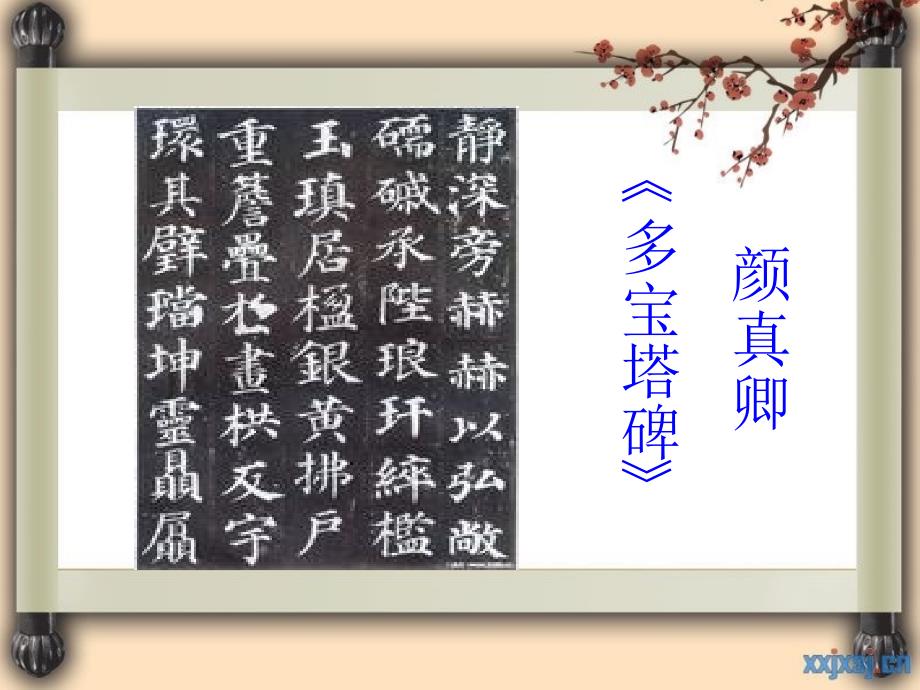 颜真卿
《多宝塔碑》
静深旁赫赫以弘敞
礝磩承陛琅玕綷檻
玉瑱居楹銀黃拂戶
重簷疊
畫栱反宇
環其璧璫坤靈贔屭
xxjxsj.cn